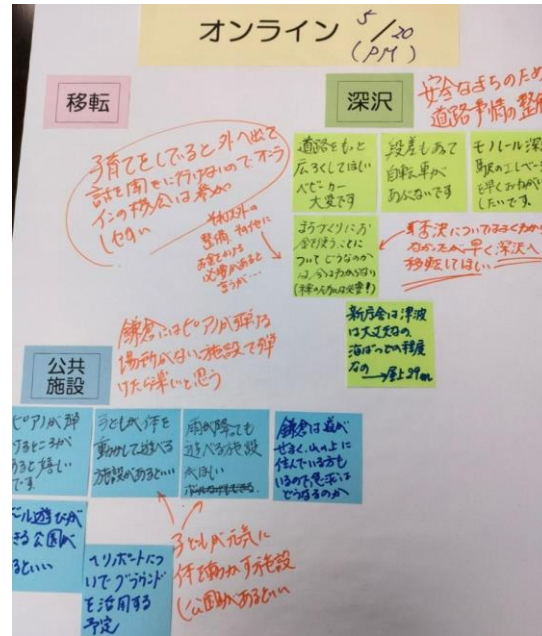 オンライン 5/20
(PM)
移転
深沢
安全なまちのため
道路事情の整備
子育てをしていると外へ出て
話を聞きに行けないのでオンラ
インの機会は参加
しやすい
道路をもっと
広くしてほしい
ベビーカー
大変です
段差もあって
自転車が
あぶないです
モノレール深
駅のエレベー
を早くおねがい
したいです。
まちづくりにお
金を使うことに
ついてどうなのか
は今はわからない
それ以外の
整備、その他に
お金をかける
必要があると
言うが…
否決についてはよくわから
なかったが早く深沢へ
移転してほしい
新庁舎は津波
は大丈夫なの、
海ばつどの程度
なの
鎌倉にはピアノが弾ける
場所がない施設で弾
けたら楽しいと思う
公共
施設
ピアノが弾
けるところが
あると嬉しい
です
子どもが体を
動かして遊べる
施設があるといい
雨が降っても
遊べる施設
がほしい
鎌倉は道が
せまく、山の上に
住んでいる方も
いるので急求は
どうなるのか
ール遊びが
きる公園が
るといい
ヘリポートにつ
いてグラウンド
を活用する
予定
子どもが元気に
体を動かす施設
(公園)があるといい